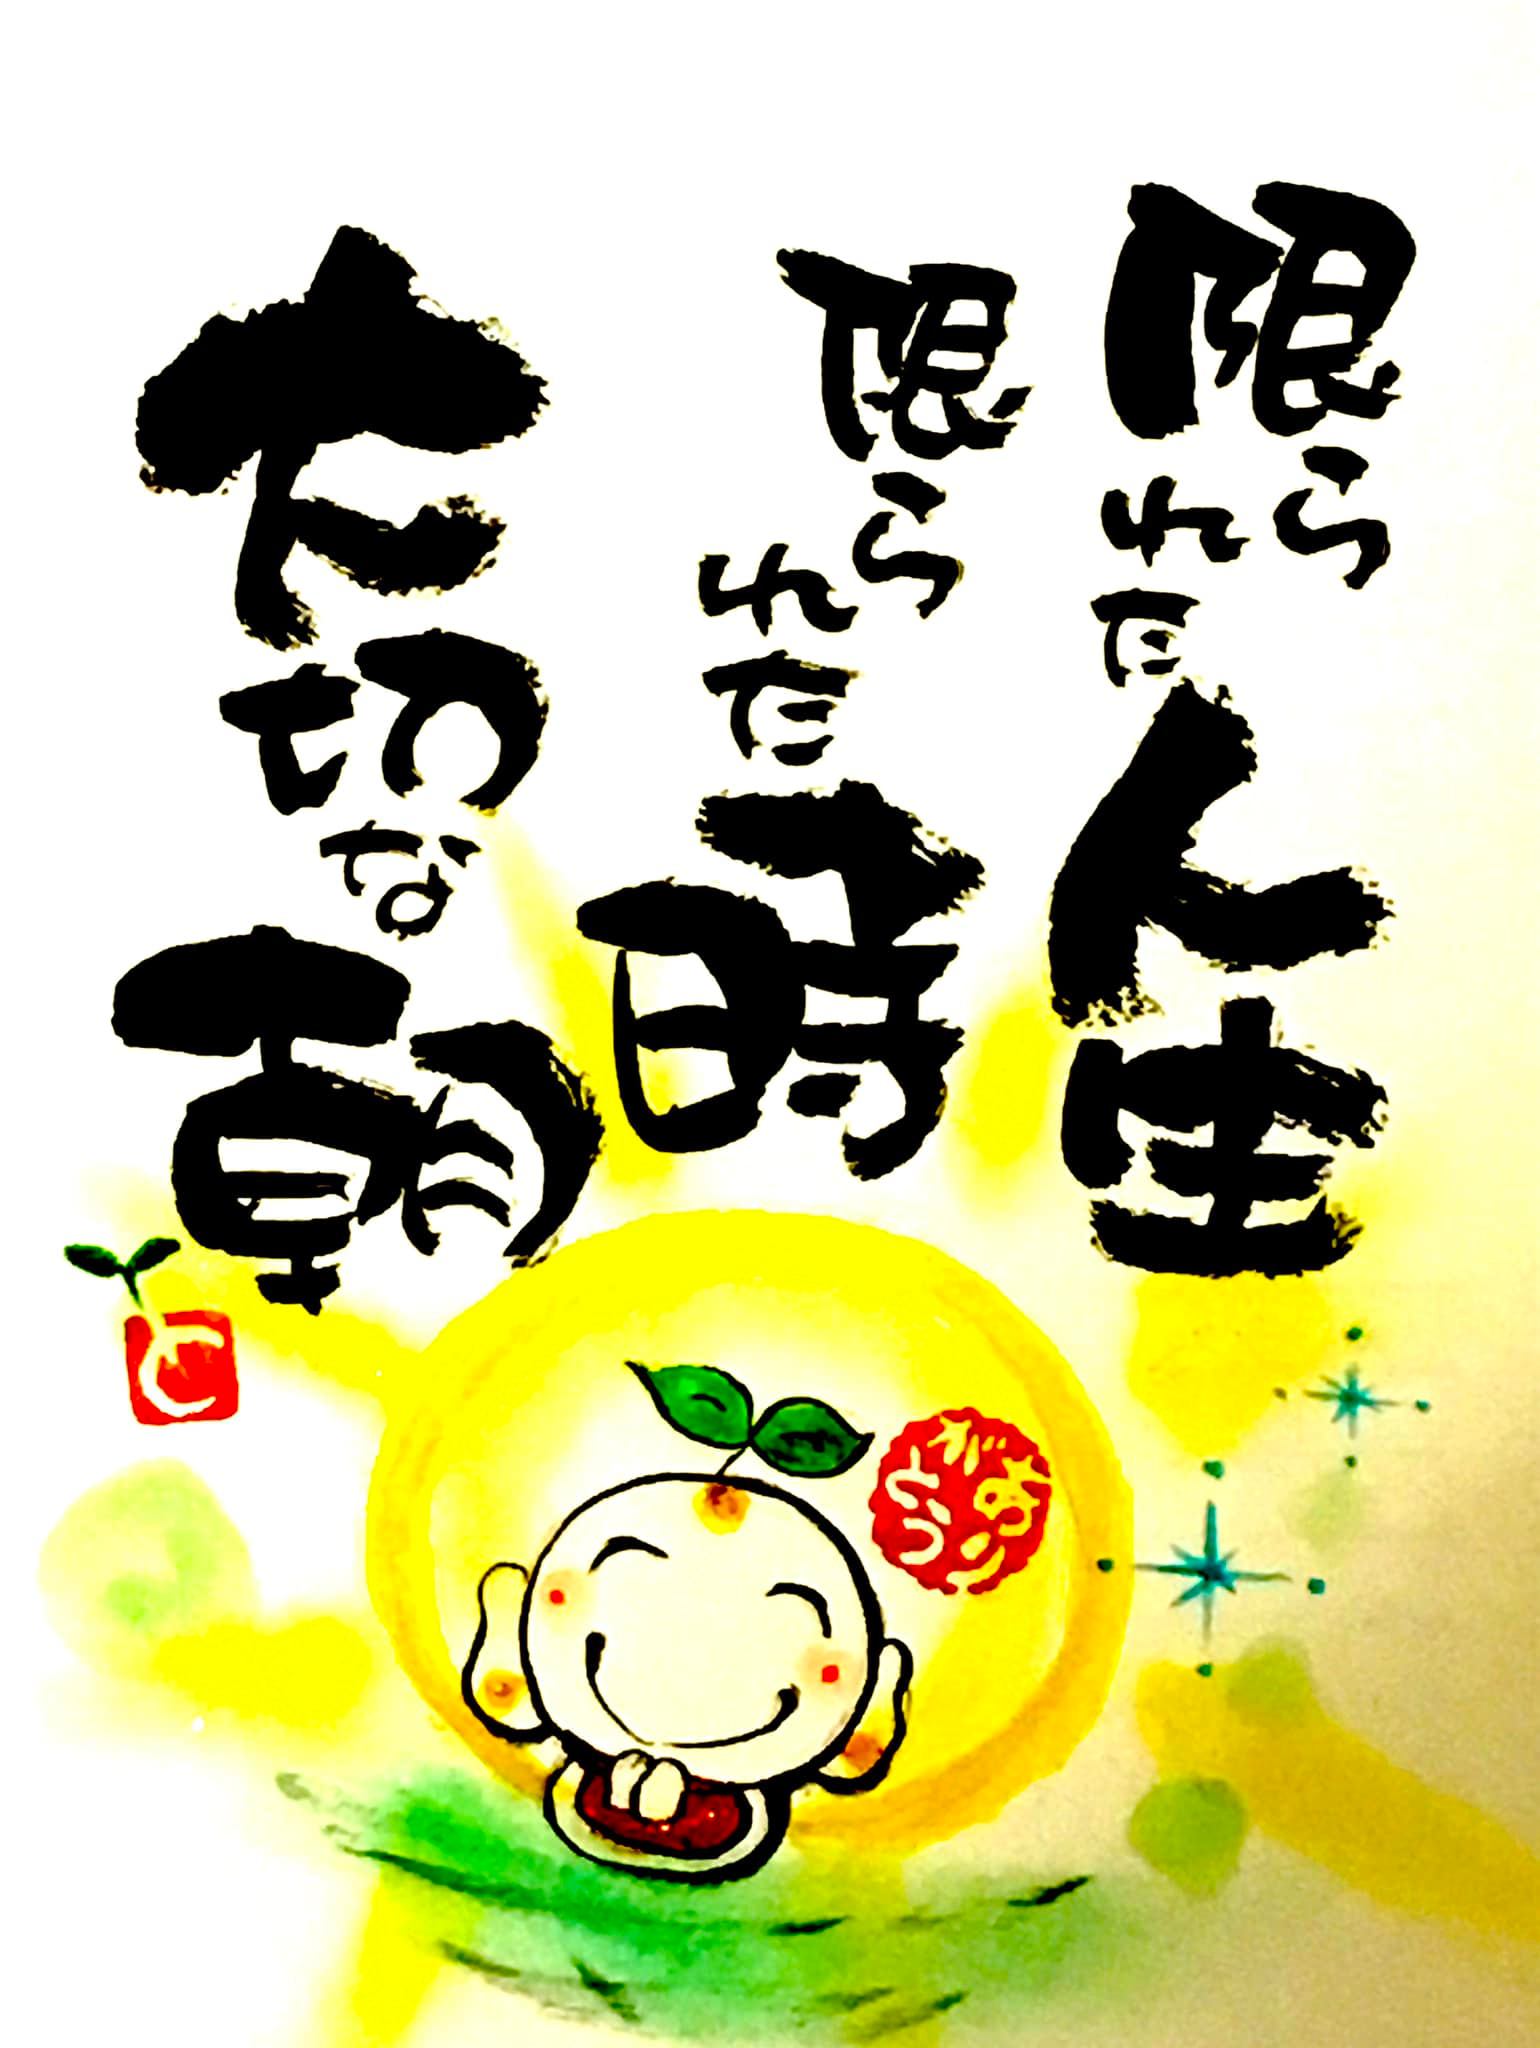 限られた人生
限られた時
大切な朝
ありがとう
と